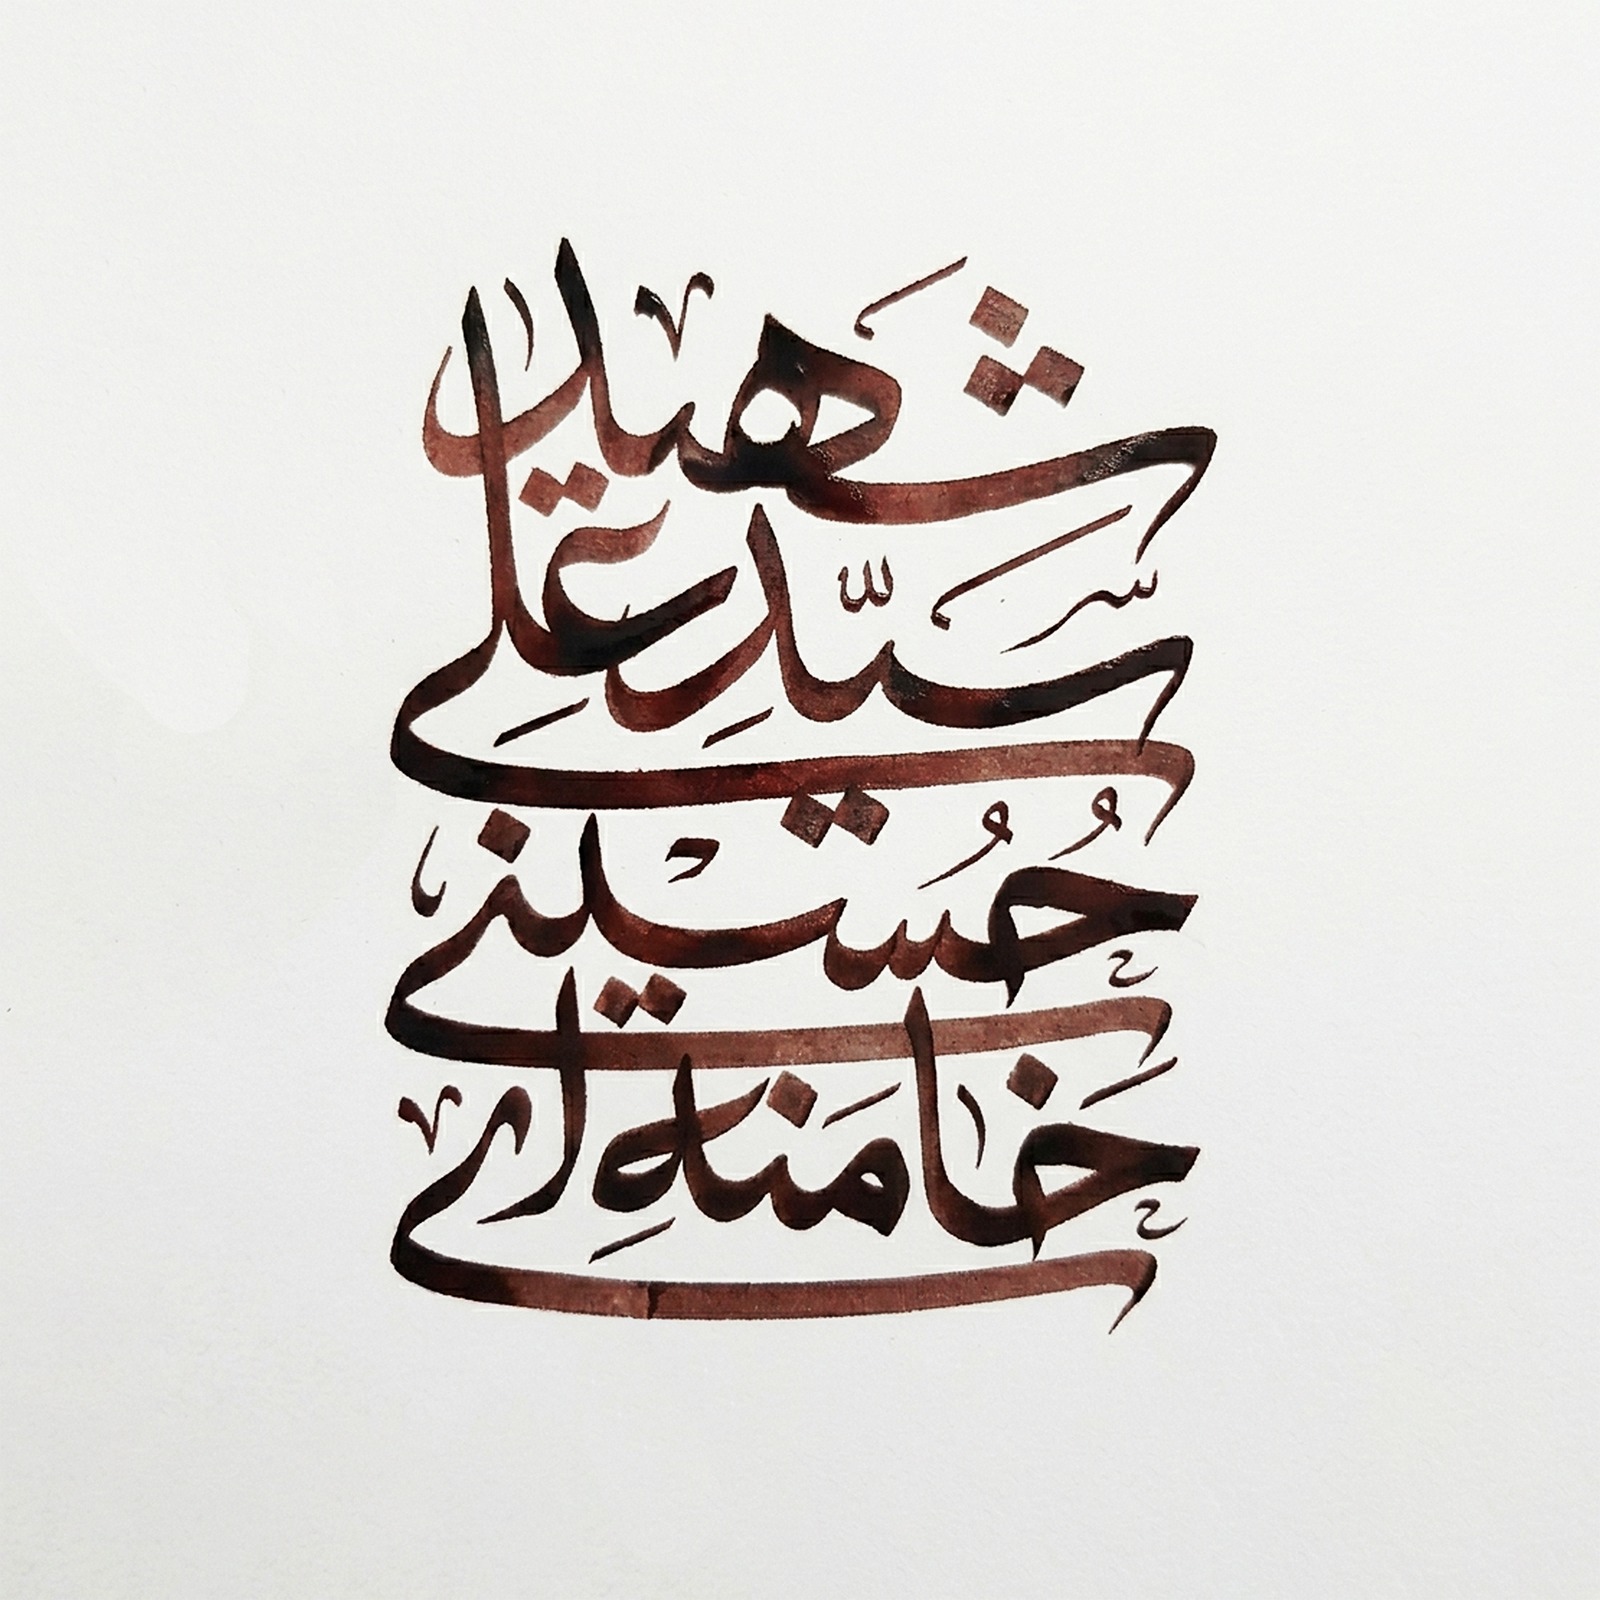 شهید
سیّد علی
حُسینی
خامنه‌ای